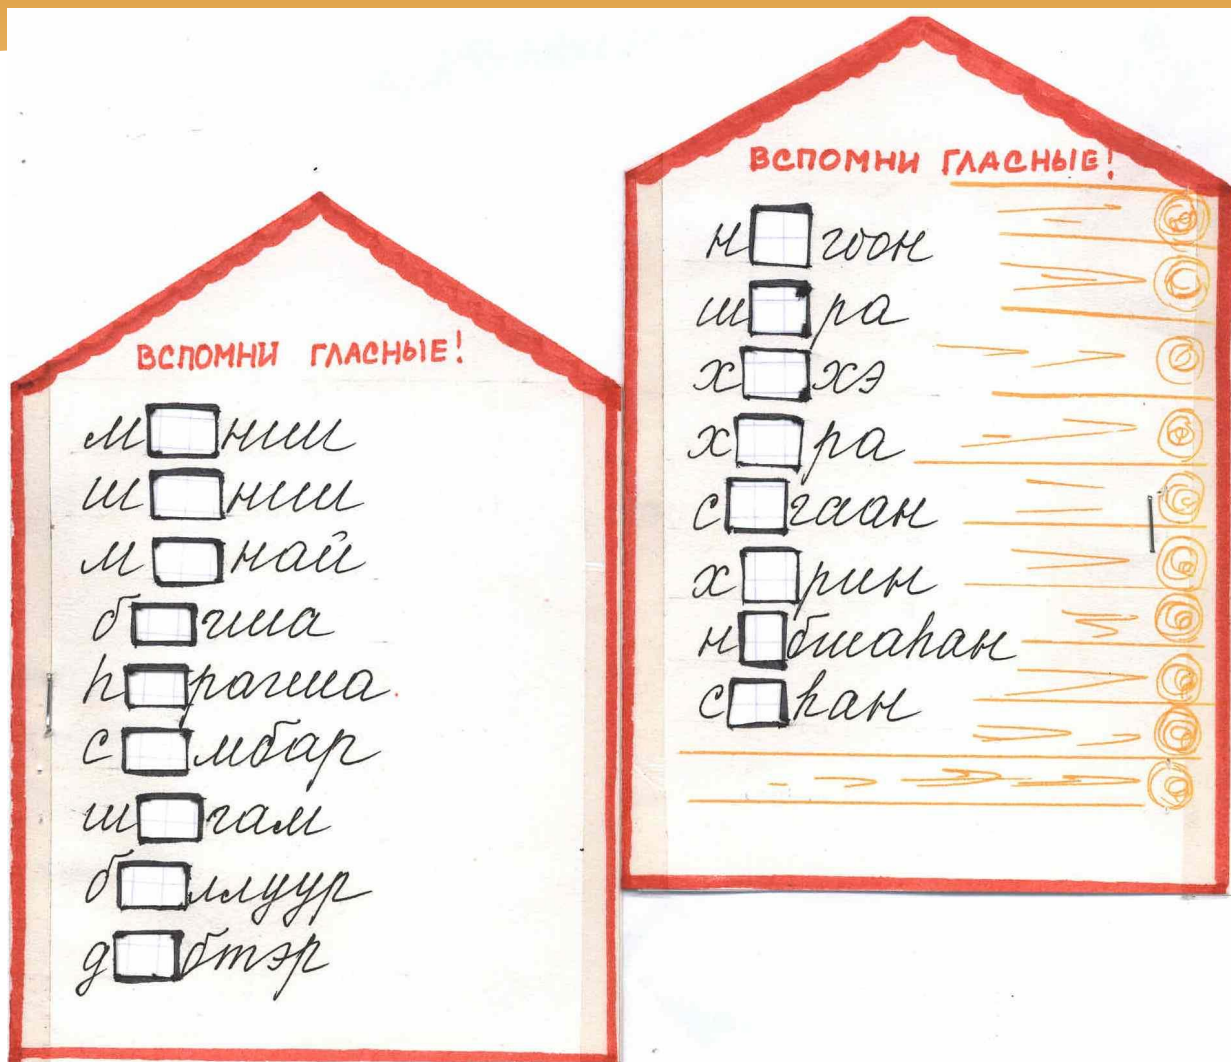 ВСПОМНИ ГЛАСНЫЕ!
м□нии
ш□нии
м□най
б□гша
һ□рагша
с□мбар
ш□гам
б□ллуур
д□бтэр
ВСПОМНИ ГЛАСНЫЕ!
н□гоон
ш□ра
х□хэ
х□ра
с□гаан
х□рин
н□бшаһан
с□һан